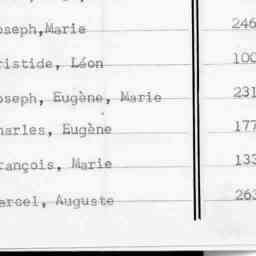 oseph,Marie 246
ristide, Léon 100
oseph, Eugène, Marie 231
harles, Eugène 177
rançois, Marie 133
arcel, Auguste 263